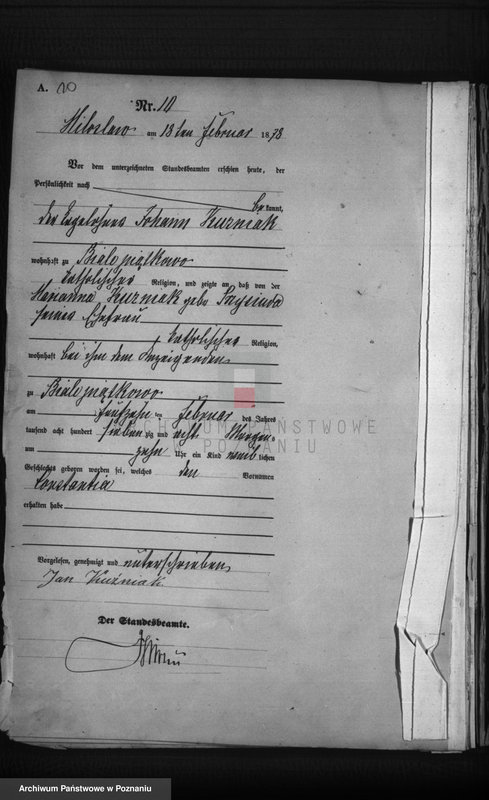 A. 10
Nr. 10
Miloslaw am 18ten Februar 1878
Vor dem unterzeichneten Standesbeamten erschien heute, der
Persönlichkeit nach
bekannt,
der Johann Kuzniak
wohnhaft zu Biale piątkowo
katholischer Religion, und zeigte an, daß von der
Marianna Kuzniak geb.
seiner Ehefrau
katholischer Religion,
wohnhaft bei ihm dem Anzeigenden
zu Biale piątkowo
am ten Februar des Jahres
tausend acht hundert siebenzig und acht Morgens
um zehn Uhr ein Kind weiblichen
Geschlechts geboren worden sei, welches den Vornamen
Constantia
erhalten habe
Vorgelesen, genehmigt und unterschrieben
Jan Kuźniak
Der Standesbeamte.
ARCHIWUM PAŃSTWOWE
POZNANIU
Archiwum Państwowe w Poznaniu